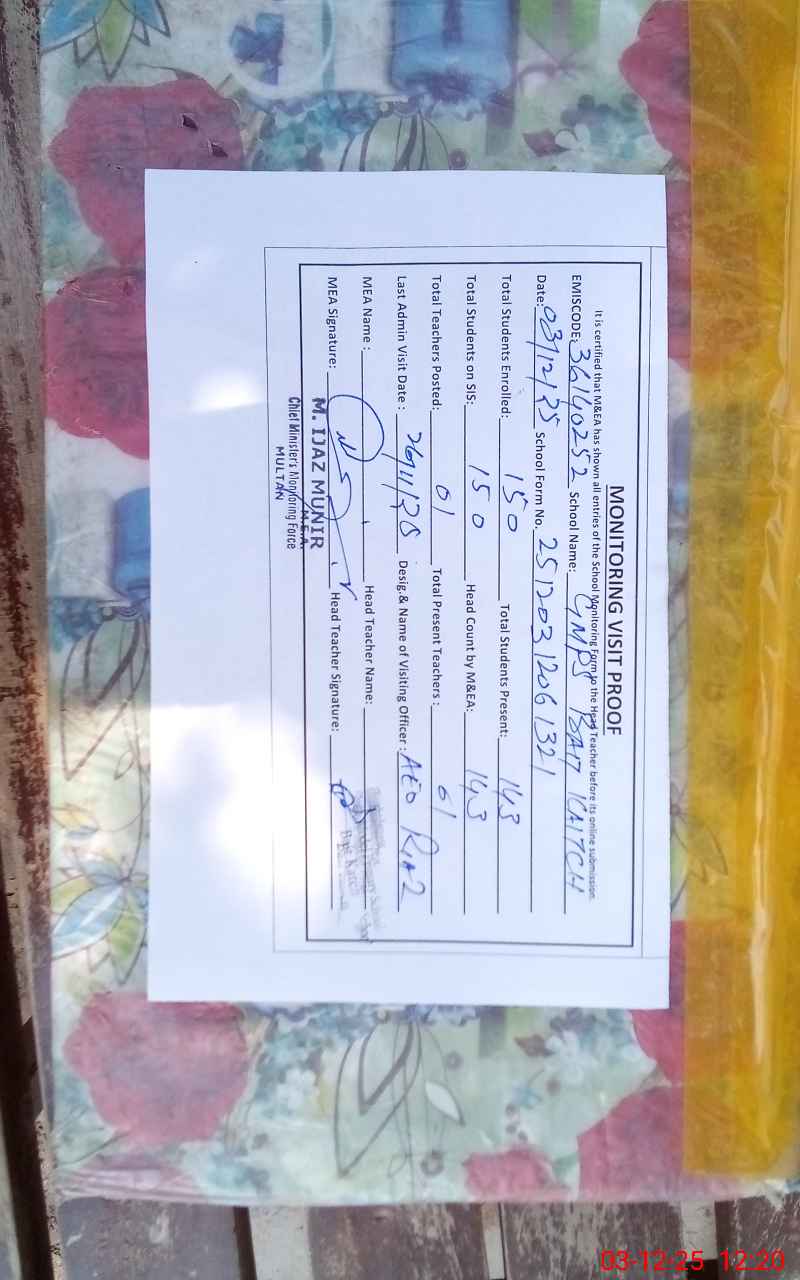 MONITORING VISIT PROOF
It is certified that M&EA has shown all entries of the School Monitoring Form to the Head Teacher before its online submission.
EMISCODE: 36140252 School Name: GMPS BAIT KAITCH
Date: 03/12/25 School Form No. 25120312061321
Total Students Enrolled: 150 Total Students Present: 143
Total Students on SIS: 150 Head Count by M&EA: 143
Total Teachers Posted: 01 Total Present Teachers: 01
Last Admin Visit Date: 26/11/25 Desig.& Name of Visiting Officer: AEO
MEA Name: Head Teacher Name:
MEA Signature: Head Teacher Signature:
M. IJAZ MUNIR
M.E.A.
Chief Minister's Monitoring Force
MULTAN
03-12-25 12:20